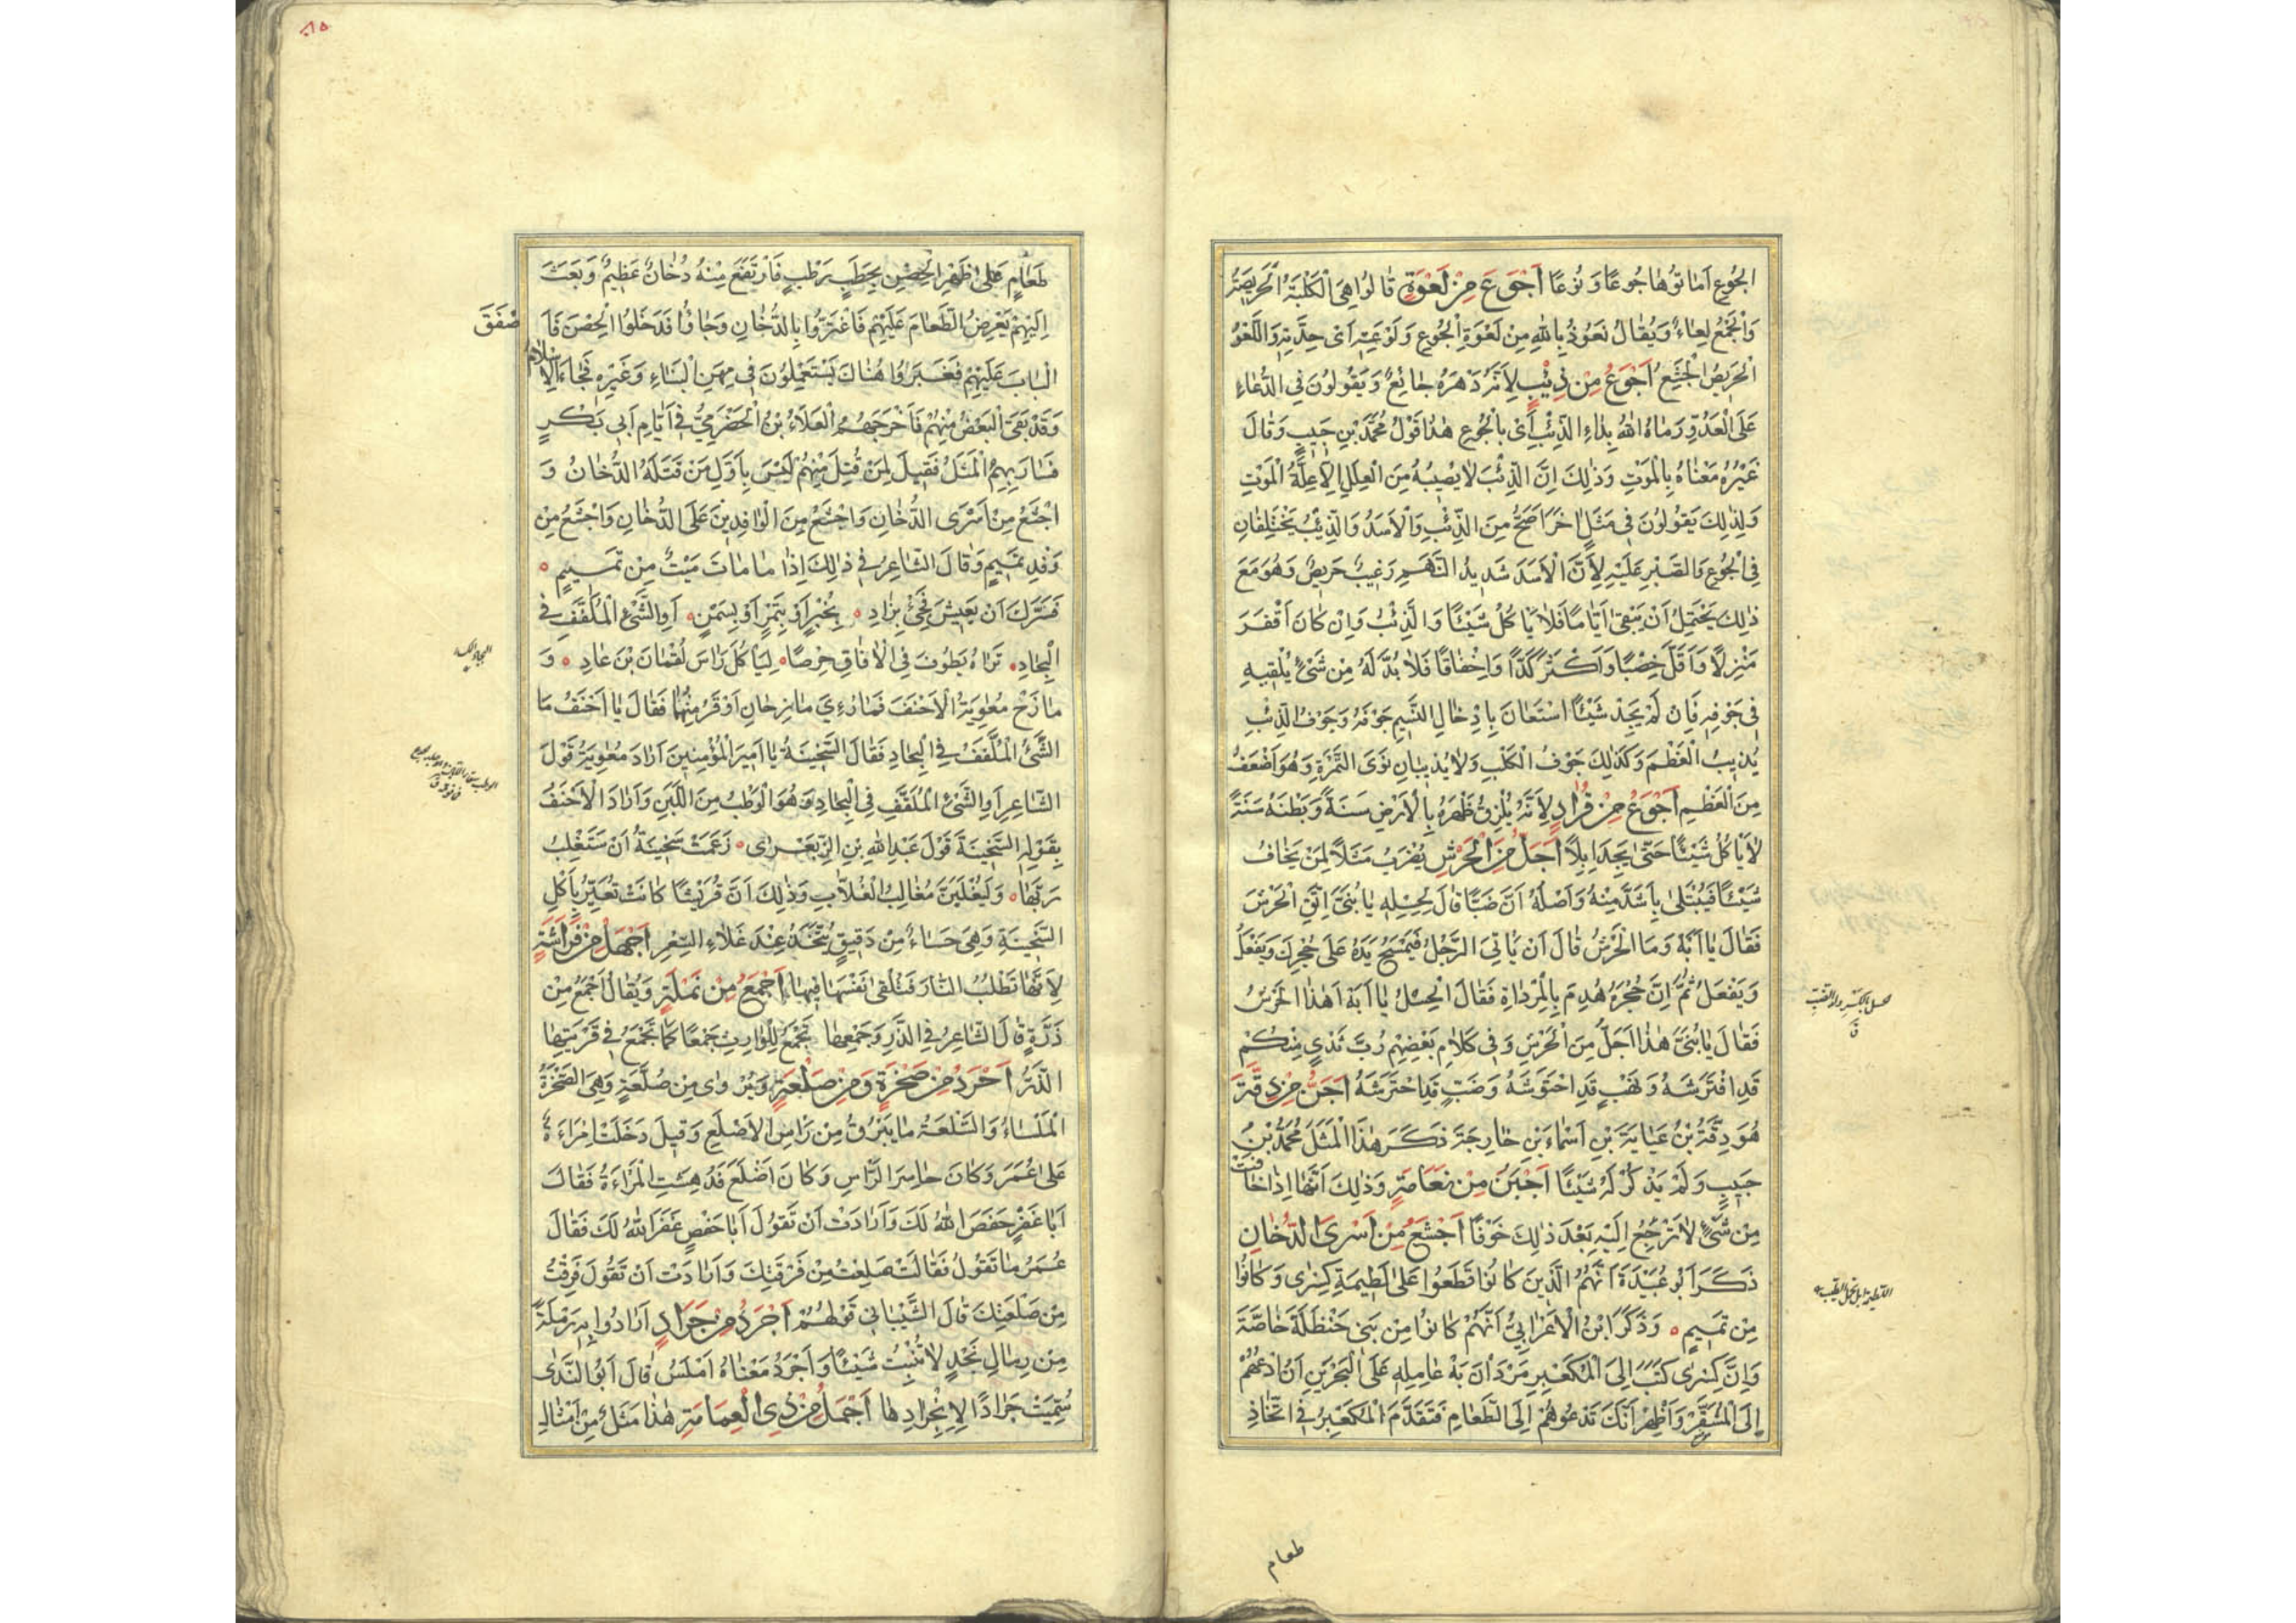 الجُوعِ اَمَاتُوهَا جُوعًا وَنُوعًا اَجْوَعَ مِنْ لَعْوَةٍ قَالُوا هِيَ الْكَلْبَةُ الْحَرِيصَةُ
وَالْجَمْعُ لِعَاءٌ وَيُقَالُ نَعُوذُ بِاللهِ مِنْ لَعْوَةِ الْجُوعِ وَلَوْعَتِهِ اَىْ حِدَّتِهِ وَاللَّعْوُ
الْحَرِيصُ الْجَشِعُ اَجْوَعُ مِنْ ذِئْبٍ لِاَنَّهُ دَهْرَهُ جَائِعٌ وَيَقُولُونَ فِي الدُّعَاءِ
عَلَى الْعَدُوِّ رَمَاهُ اللهُ بِدَاءِ الذِّئْبِ اَىْ بِالْجُوعِ هٰذَا قَوْلُ مُحَمَّدِ بْنِ حَبِيبٍ وَقَالَ
غَيْرُهُ مَعْنَاهُ بِالْمَوْتِ وَذٰلِكَ اِنَّ الذِّئْبَ لَا يُصِيبُهُ مِنَ الْعِلَلِ اِلَّا عِلَّةُ الْمَوْتِ
وَلِذٰلِكَ يَقُولُونَ فِى مَثَلٍ اٰخَرَ اَصَحُّ مِنَ الذِّئْبِ وَالْاَسَدُ وَالذِّئْبُ يَخْتَلِفَانِ
فِى الْجُوعِ وَالصَّبْرِ عَلَيْهِ لِاَنَّ الْاَسَدَ شَدِيدُ النَّهَمِ رَغِيبٌ حَرِيصٌ وَهُوَ مَعَ
ذٰلِكَ يَحْتَمِلُ اَنْ يَبْقَىٰ اَيَّامًا فَلَا يَاْكُلُ شَيْئًا وَالذِّئْبُ وَاِنْ كَانَ اَقْفَرَ
مَنْزِلًا وَاَقَلَّ خِصْبًا وَاَكْثَرَ كَدًّا وَاِخْفَاقًا فَلَا بُدَّ لَهُ مِنْ شَىْءٍ يُلْقِيهِ
فِى جَوْفِهِ فَاِنْ لَمْ يَجِدْ شَيْئًا اسْتَعَانَ بِاِدْخَالِ النَّسِيمِ جَوْفَهُ وَجَوْفُ الذِّئْبِ
يُذِيبُ الْعَظْمَ وَكَذٰلِكَ جَوْفُ الْكَلْبِ وَلَا يُذِيبَانِ نَوَى التَّمْرَةِ وَهُوَ اَضْعَفُ
مِنَ الْعَظْمِ اَجْوَعُ مِنْ قُرَادٍ لِاَنَّهُ يُلْزِقُ ظَهْرَهُ بِالْاَرْضِ سَنَةً وَبَطْنَهُ سَنَةً
لَا يَاْكُلُ شَيْئًا حَتّٰى يَجِدَ اِبِلًا اَجَلُّ مِنَ الْحَرْشِ يُضْرَبُ مَثَلًا لِمَنْ يَخَافُ
شَيْئًا فَيُبْتَلىٰ بِاَشَدَّ مِنْهُ وَاَصْلُهُ اَنَّ ضَبًّا قَالَ لِحِسْلِهِ يَا بُنَىَّ اتَّقِ الْحَرْشَ
فَقَالَ يَا اَبَهْ وَمَا الْحَرْشُ قَالَ اَنْ يَاْتِىَ الرَّجُلُ فَيَمْسَحُ يَدَهُ عَلَى جُحْرِكَ وَيَفْعَلُ
وَيَفْعَلُ ثُمَّ اِنَّ جُحْرَهُ هُدِمَ بِالْمِرْدَاةِ فَقَالَ الْحِسْلُ يَا اَبَهْ اَهٰذَا الْحَرْشُ
فَقَالَ يَا بُنَىَّ هٰذَا اَجَلُّ مِنَ الْحَرْشِ وَفِى كَلَامِ بَعْضِهِمْ رُبَّ ثَدْىٍ مِنْكُمْ
قَدِ افْتَرَشَهُ وَنَهْبٍ قَدِ احْتَوَشَهُ وَضَبٍّ قَدِ احْتَرَشَهُ اَجَنُّ مِنْ دِقَّةَ
هُوَ دِقَّةُ بْنُ عَيَايَةَ بْنِ اَسْمَاءَ بْنِ خَارِجَةَ ذَكَرَ هٰذَا الْمَثَلَ مُحَمَّدُ بْنُ
حَبِيبٍ وَلَمْ يَذْكُرْ لَهُ شَيْئًا اَجْبَنُ مِنْ نَعَامَةٍ وَذٰلِكَ اَنَّهَا اِذَا خَافَتْ
مِنْ شَىْءٍ لَا تَرْجِعُ اِلَيْهِ بَعْدَ ذٰلِكَ خَوْفًا اَجْشَعُ مِنْ اَسْرَى الدُّخَانِ
ذَكَرَ اَبُو عُبَيْدَةَ اَنَّهُمُ الَّذِينَ كَانُوا قَطَعُوا عَلىٰ لَطِيمَةِ كِسْرٰى وَكَانُوا
مِنْ تَمِيمٍ ٥ وَذَكَرَ ابْنُ الْاَعْرَابِىِّ اَنَّهُمْ كَانُوا مِنْ بَنِى حَنْظَلَةَ خَاصَّةً
وَاِنَّ كِسْرٰى كَتَبَ اِلَى الْمُكَعْبِرِ مَرْدَانَ بَهْ عَامِلِهِ عَلَى الْبَحْرَيْنِ اَنِ ادْعُهُمْ
اِلَى الْمُشَقَّرِ وَاَظْهِرْ اَنَّكَ تَدْعُوهُمْ اِلَى الطَّعَامِ فَتَقَدَّمَ الْمُكَعْبِرُ فِى اتِّخَاذِ
طعام
طَعَامٍ عَلىٰ ظَهْرِ الْحِصْنِ بِحَطَبٍ رَطْبٍ فَارْتَفَعَ مِنْهُ دُخَانٌ عَظِيمٌ وَبَعَثَ
اِلَيْهِمْ يَعْرِضُ الطَّعَامَ عَلَيْهِمْ فَاغْتَرُّوا بِالدُّخَانِ وَجَاؤُا فَدَخَلُوا الْحِصْنَ فَاَصْفَقَ
الْبَابَ عَلَيْهِمْ فَغَبَرُوا هُنَاكَ يُسْتَعْمَلُونَ فِى مِهَنِ الْبِنَاءِ وَغَيْرِهِ فَجَاءَ الْاِسْلَامُ
وَقَدْ بَقِىَ الْبَعْضُ مِنْهُمْ فَاَخْرَجَهُمُ الْعَلَاءُ بْنُ الْحَضْرَمِىِّ فِى اَيَّامِ اَبِى بَكْرٍ
فَسَارَ بِهِمُ الْمَثَلُ فَقِيلَ لِمَنْ قُتِلَ مِنْهُمْ لَيْسَ بِاَوَّلِ مَنْ قَتَلَهُ الدُّخَانُ وَ
اَجْشَعُ مِنْ اَسْرَى الدُّخَانِ وَاَجْشَعُ مِنَ الْوَافِدِينَ عَلَى الدُّخَانِ وَاَجْشَعُ مِنْ
وَفْدِ تَمِيمٍ وَقَالَ الشَّاعِرُ فِى ذٰلِكَ اِذَا مَا مَاتَ مَيْتٌ مِنْ تَمِيمٍ ٥
فَسَرَّكَ اَنْ يَعِيشَ فَجِئْ بِزَادِ ٥ بِخُبْزٍ اَوْ بِتَمْرٍ اَوْ بِسَمْنٍ ٥ اَوِ الشَّىْءِ الْمُلَفَّفِ فِى
الْبِجَادِ ٥ تَرَاهُ يَطُوفُ فِى الْاٰفَاقِ حِرْصًا ٥ لِيَاْكُلَ رَاْسَ لُقْمَانَ بْنَ عَادِ ٥ وَ
مَازَحَ مُعٰوِيَةُ الْاَحْنَفَ فَمَا رُءِىَ مَازِحَانِ اَوْقَرُ مِنْهُمَا فَقَالَ يَا اَحْنَفُ مَا
الشَّىْءُ الْمُلَفَّفُ فِى الْبِجَادِ فَقَالَ السَّخِينَةُ يَا اَمِيرَ الْمُؤْمِنِينَ اَرَادَ مُعٰوِيَةُ قَوْلَ
الشَّاعِرِ اَوِ الشَّىْءِ الْمُلَفَّفِ فِى الْبِجَادِ وَهُوَ الْوَطْبُ مِنَ اللَّبَنِ وَاَرَادَ الْاَحْنَفُ
بِقَوْلِهِ السَّخِينَةَ قَوْلَ عَبْدِ اللهِ بْنِ الزِّبَعْرٰى ٥ زَعَمَتْ سَخِينَةُ اَنْ سَتَغْلِبُ
رَبَّهَا ٥ وَلَيُغْلَبَنَّ مُغَالِبُ الْغَلَّابِ وَذٰلِكَ اَنَّ قُرَيْشًا كَانَتْ تُعَيَّرُ بِاَكْلِ
السَّخِينَةِ وَهِىَ حَسَاءٌ مِنْ دَقِيقٍ يُتَّخَذُ عِنْدَ غَلَاءِ السِّعْرِ اَجْهَلُ مِنْ فَرَاشَةٍ
لِاَنَّهَا تَطْلُبُ النَّارَ فَتُلْقِى نَفْسَهَا فِيهَا اَجْمَعُ مِنْ نَمْلَةٍ وَيُقَالُ اَجْمَعُ مِنْ
ذَرَّةٍ قَالَ الشَّاعِرُ فِى الذَّرِّ وَجَمْعِهَا تَجْمَعُ لِلْوَارِثِ جَمْعًا كَمَا تَجْمَعُ فِى قَرْيَتِهَا
الذَّرُّ اَجْرَدُ مِنْ صَخْرَةٍ وَمِنْ صَلْعَةٍ وَيُرْوٰى مِنْ صُلَّعَةٍ وَهِىَ الصَّخْرَةُ
الْمَلْسَاءُ وَالصَّلْعَةُ مَا يَبْرُقُ مِنْ رَاْسِ الْاَصْلَعِ وَقِيلَ دَخَلَتْ اِمْرَاَةٌ
عَلىٰ عُمَرَ وَكَانَ حَاسِرَ الرَّاْسِ وَكَانَ اَصْلَعَ فَدُهِشَتِ الْمَرْاَةُ فَقَالَتْ
اَبَا غَفْرٍ حَفَصَ اللهُ لَكَ وَاَرَادَتْ اَنْ تَقُولَ اَبَا حَفْصٍ غَفَرَ اللهُ لَكَ فَقَالَ
عُمَرُ مَا تَقُولُ فَقَالَتْ صَلِعْتُ مِنْ فَرْقَتِكَ وَاَرَادَتْ اَنْ تَقُولَ فَرِقْتُ
مِنْ صَلْعَتِكَ قَالَ الشَّيْبَانِى قَوْلُهُمْ اَجْرَدُ مِنْ جَرَادٍ اَرَادُوا بِهِ رَمْلَةً
مِنْ رِمَالِ نَجْدٍ لَا تُنْبِتُ شَيْئًا وَاَجْرَدُ مَعْنَاهُ اَمْلَسُ قَالَ اَبُو النَّدٰى
سُمِّيَتْ جَرَادًا لِانْجِرَادِهَا اَجْمَلُ مِنْ ذِى الْعِمَامَةِ هٰذَا مَثَلٌ مِنْ اَمْثَالِ